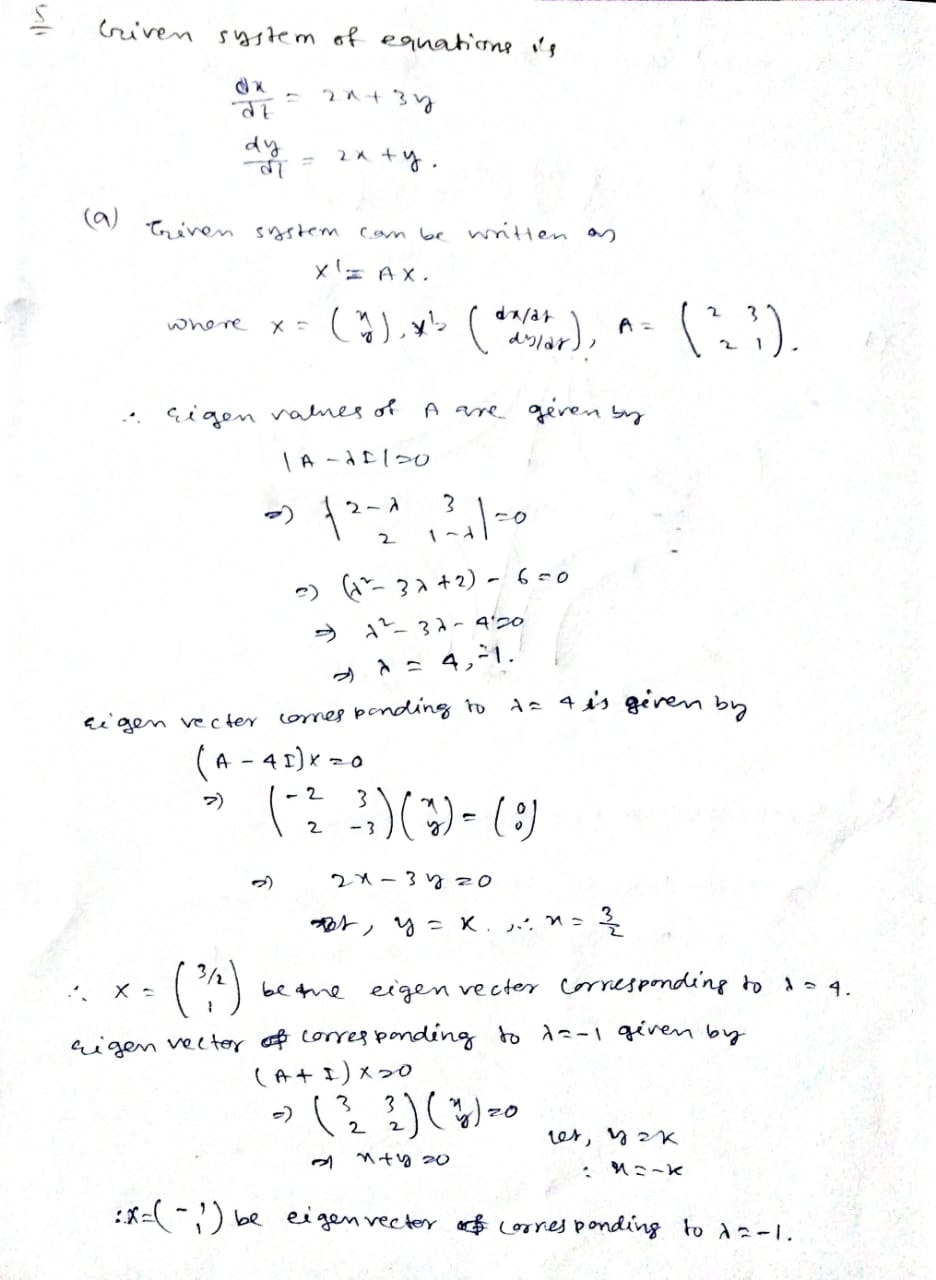 5 Given system of equations is
dx/dt = 2x + 3y
dy/dt = 2x + y.
(a) Given system can be written as
X' = AX.
where x = (x y), x' = (dx/dt dy/dt), A = (2 3 2 1).
∴ Eigen values of A are given by
|A - λI| = 0
⇒ |2-λ 3 2 1-λ| = 0
⇒ (λ² - 3λ + 2) - 6 = 0
⇒ λ² - 3λ - 4 = 0
⇒ λ = 4, -1.
Eigen vecter corresponding to λ = 4 is given by
(A - 4I)X = 0
⇒ (-2 3 2 -3)(x y) = (0 0)
⇒ 2x - 3y = 0
y = k. ∴ x = 3/2
∴ X = (3/2 1) be the eigen vecter corresponding to λ = 4.
Eigen vector corresponding to λ = -1 given by
(A + I)X = 0
⇒ (3 3 2 2)(x y) = 0
let, y = k
⇒ x + y = 0
: x = -k
∴ X = (-1 1) be eigen vector corresponding to λ = -1.